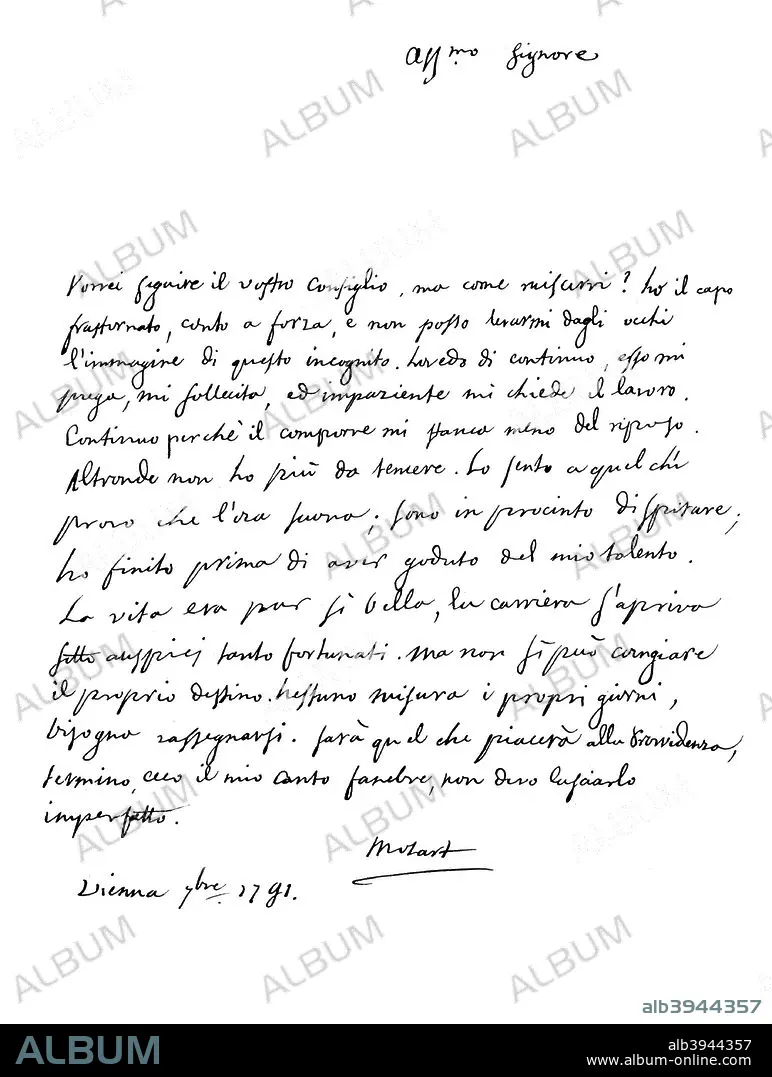 Aff.mo Signore
Vorrei seguire il vostro Consiglio, ma come riuscirvi? ho il capo
frastornato, conto a forza, e non posso levarmi dagli occhi
l'immagine di questo incognito. Lo vedo di continuo, esso mi
prega, mi sollecita, ed impaziente mi chiede il lavoro.
Continuo perchè il comporre mi stanca meno del riposo.
Altronde non ho più da temere. Lo sento a quel chi
provo che l'ora suona; sono in procinto di spirare;
ho finito prima di aver goduto del mio talento.
La vita era pur sì bella, la carriera s'apriva
sotto auspicj tanto fortunati. ma non si può cangiare
il proprio destino. nessuno misura i propri giorni,
bisogna rassegnarsi. sarà quel che piacerà alla Providenza,
termino, ecco il mio canto funebre, non devo lasciarlo
imperfetto.
Mozart
Vienna 7bre 1791.
ALBUM
alb3944357
ALBUM
alb3944357
www.album-online.com